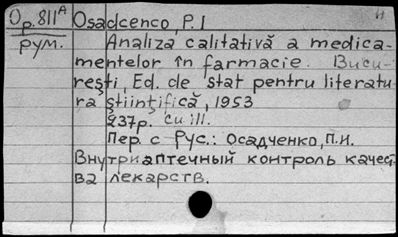 Op. 811A Osadcenco, P. I
рум. Analiza calitativă a medica-
mentelor în farmacie. Bucu-
reşti, Ed. de stat pentru literatu-
ra ştiinţifică, 1953
237p. cu ill.
Пер. с Рус.: Осадченко, П.И.
Внутриаптечный контроль качест
ва лекарств.